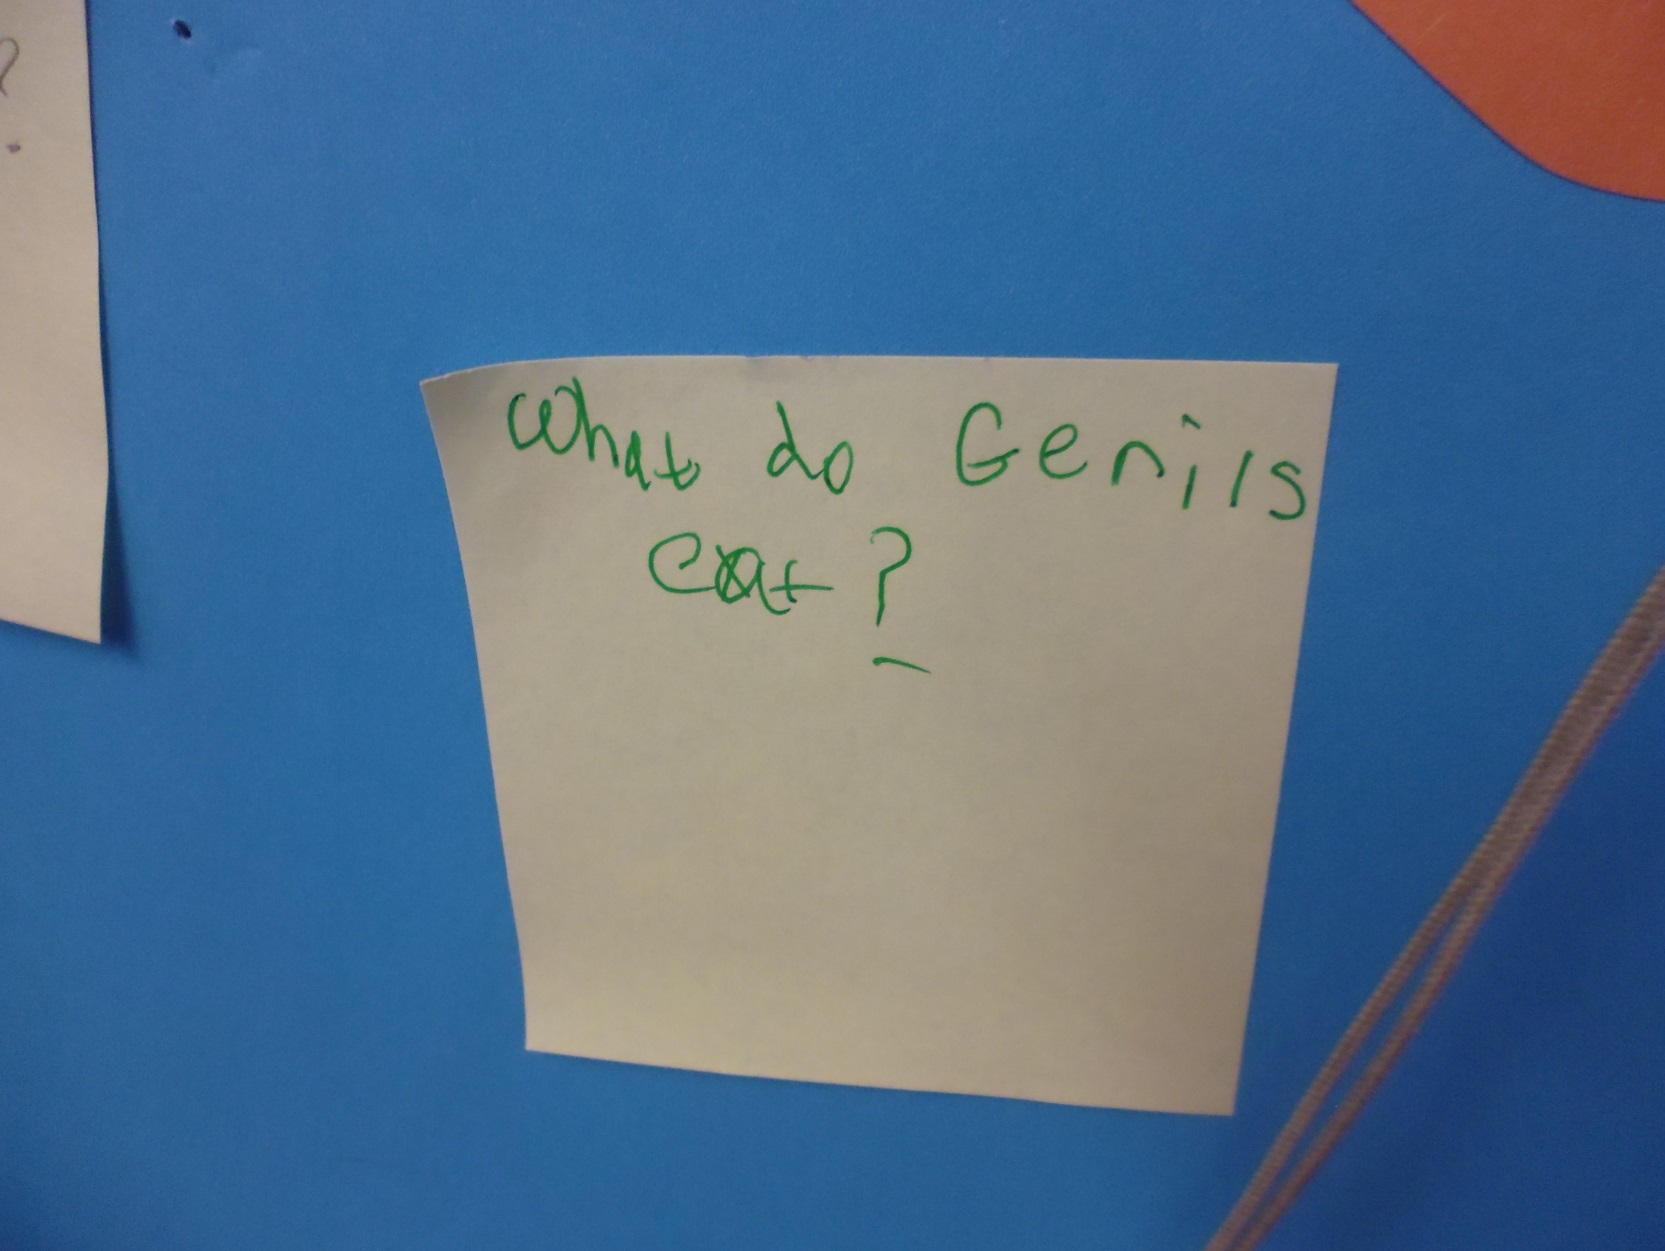 ?
What do Genils
eat?